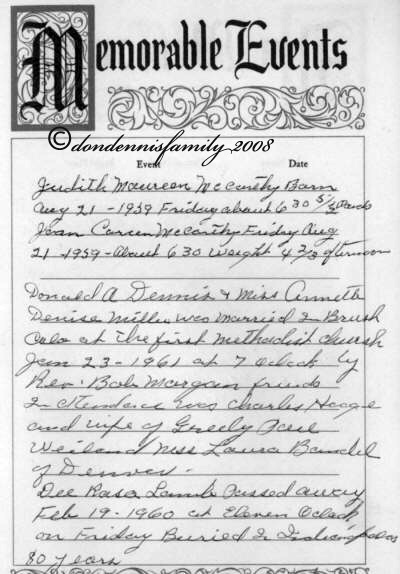 Memorable Events
© dondennisfamily 2008
Event Date
Judith Maureen McCarthy Born
Aug 21 - 1959 Friday about 6 30 5 1/2 Pounds
Joan Careen McCarthy Friday Aug
21 - 1959 - About 6 30 Weight 4 2/3 afternoon
Donald A Dennis & Miss Annette
Denise Miller was Married In Brush
Colo at the first Methodist church
Jan 23 - 1961 at 7 Oclock by
Rev. Bob Morgan friends
In attendance was Charles
and wife of Greely Paul
Weiland Miss Laura
of Denver.
Dee Rasa Lamb Passed away
Feb 19 - 1960 at Eleven Oclock
on Friday Buried In
80 years